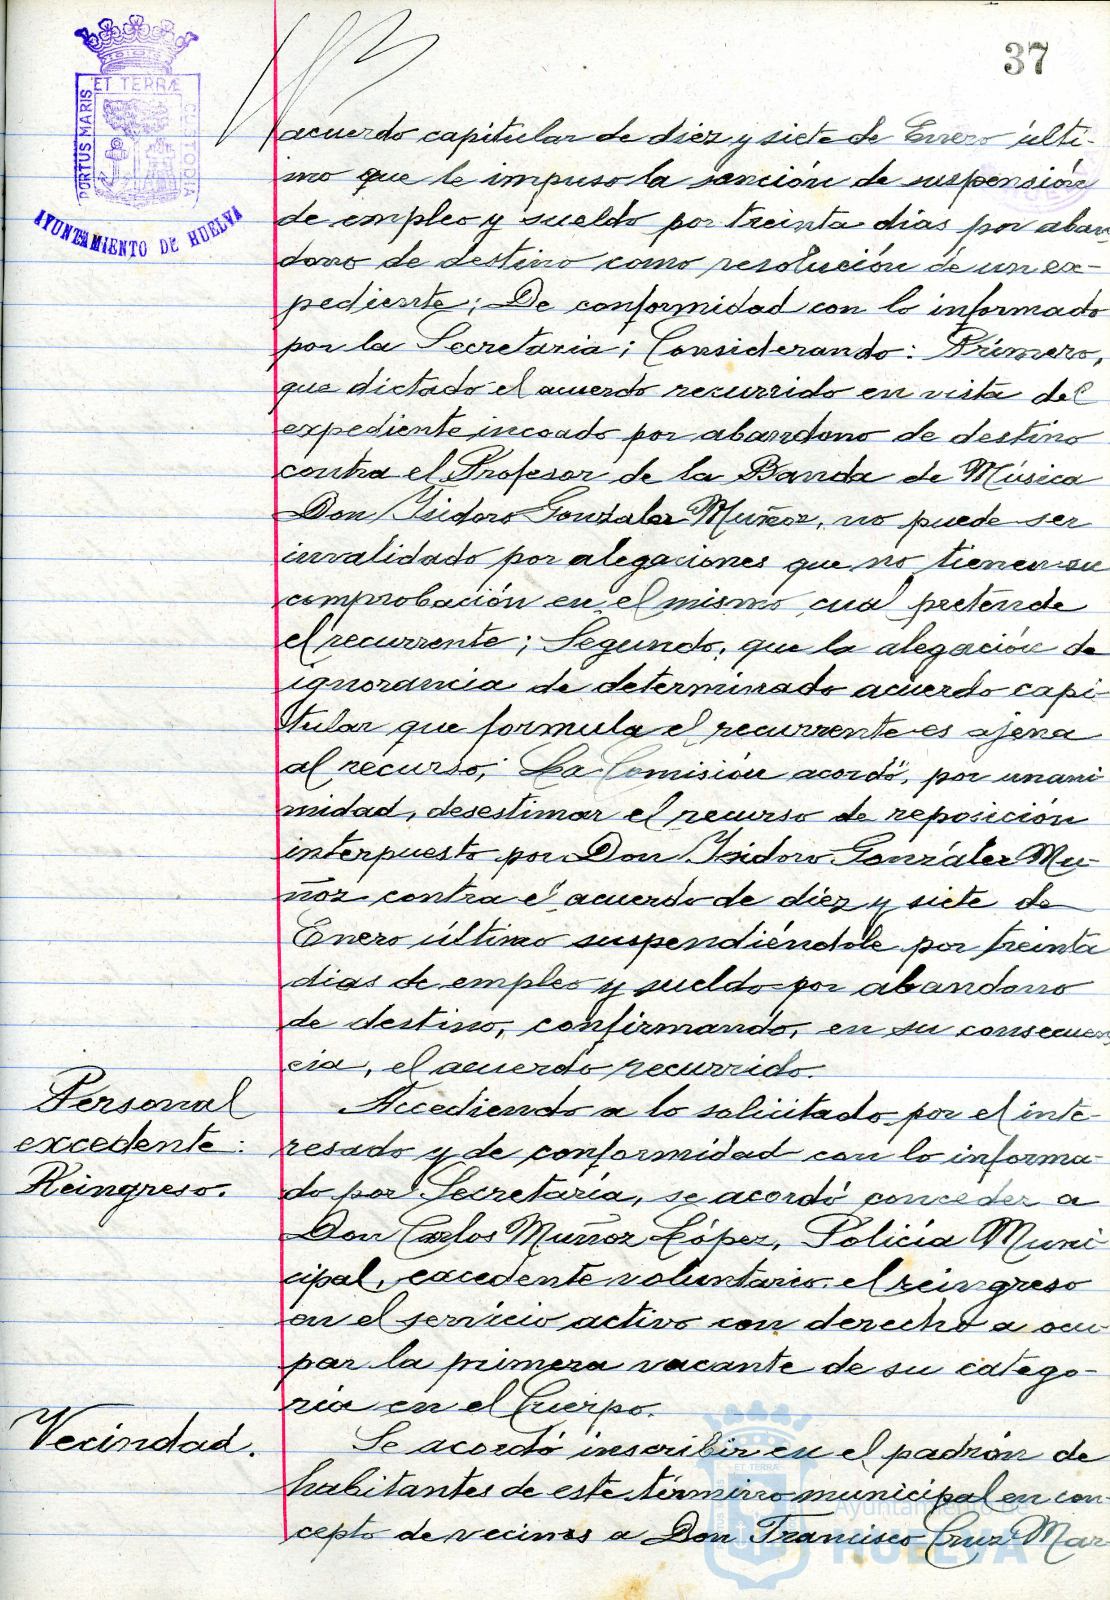 37
ET TERRÆ
PORTUS MARIS
CUSTODIA
AYUNTAMIENTO DE HUELVA
acuerdo capitular de diez y siete de Enero últi-
mo que le impuso la sanción de suspensión
de empleo y sueldo por treinta dias por aban
dono de destino como resolución de un ex-
pediente; De conformidad con lo informado
por la Secretaria; Considerando: Primero,
que dictado el acuerdo recurrido en vista del
expediente incoado por abandono de destino
contra el Profesor de la Banda de Música
Don Isidoro Gonzalez Muñoz, no puede ser
invalidado por alegaciones que no tienen su
comprobación en el mismo cual pretende
el recurrente; Segundo, que la alegación de
ignorancia de determinado acuerdo capi-
tular que formula el recurrente es ajena
al recurso; La Comisión acordó, por unani
midad, desestimar el recurso de reposición
interpuesto por Don Isidoro González Mu-
ñoz contra el acuerdo de diez y siete de
Enero último suspendiéndole por treinta
dias de empleo y sueldo por abandono
de destino, confirmando, en su consecuen
cia, el acuerdo recurrido.
Personal
excedente:
Reingreso.
Accediendo a lo solicitado por el inte-
resado y de conformidad con lo informa-
do por Secretaría, se acordó conceder a
Don Carlos Muñoz López, Policía Muni
cipal, excedente voluntario, el reingreso
en el servicio activo con derecho a ocu
par la primera vacante de su catego-
ría en el Cuerpo.
Vecindad.
Se acordó inscribir en el padrón de
habitantes de este término municipal en con-
cepto de vecinos a Don Francisco Cruz Mar
Ayuntamiento de
HUELVA